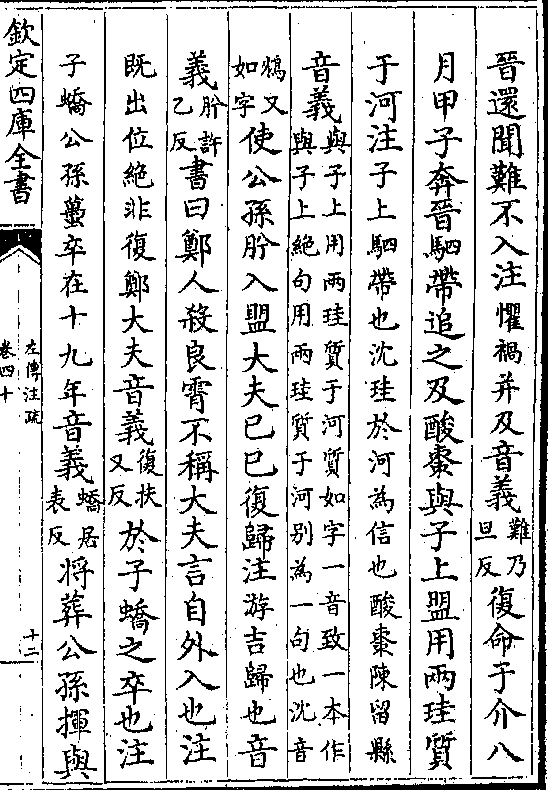 晉還聞難不入注懼禍并及音義難乃旦反復命于介八
月甲子奔晉駟帶追之及酸棗與子上盟用兩珪質
于河注子上駟帶也沈珪於河為信也酸棗陳留縣
音義與子上用兩珪質于河質如字一音致一本作與子上絶句用兩珪質于河别為一句也沈音
鴆又如字使公孫肸入盟大夫己巳復歸注游吉歸也音
義肸許乙反書曰鄭人殺良霄不稱大夫言自外入也注
既出位絶非復鄭大夫音義復扶又反於子蟜之卒也注
子蟜公孫蠆卒在十九年音義蟜居表反將葬公孫揮與
欽定四庫全書
左傳注疏
卷四十
十二